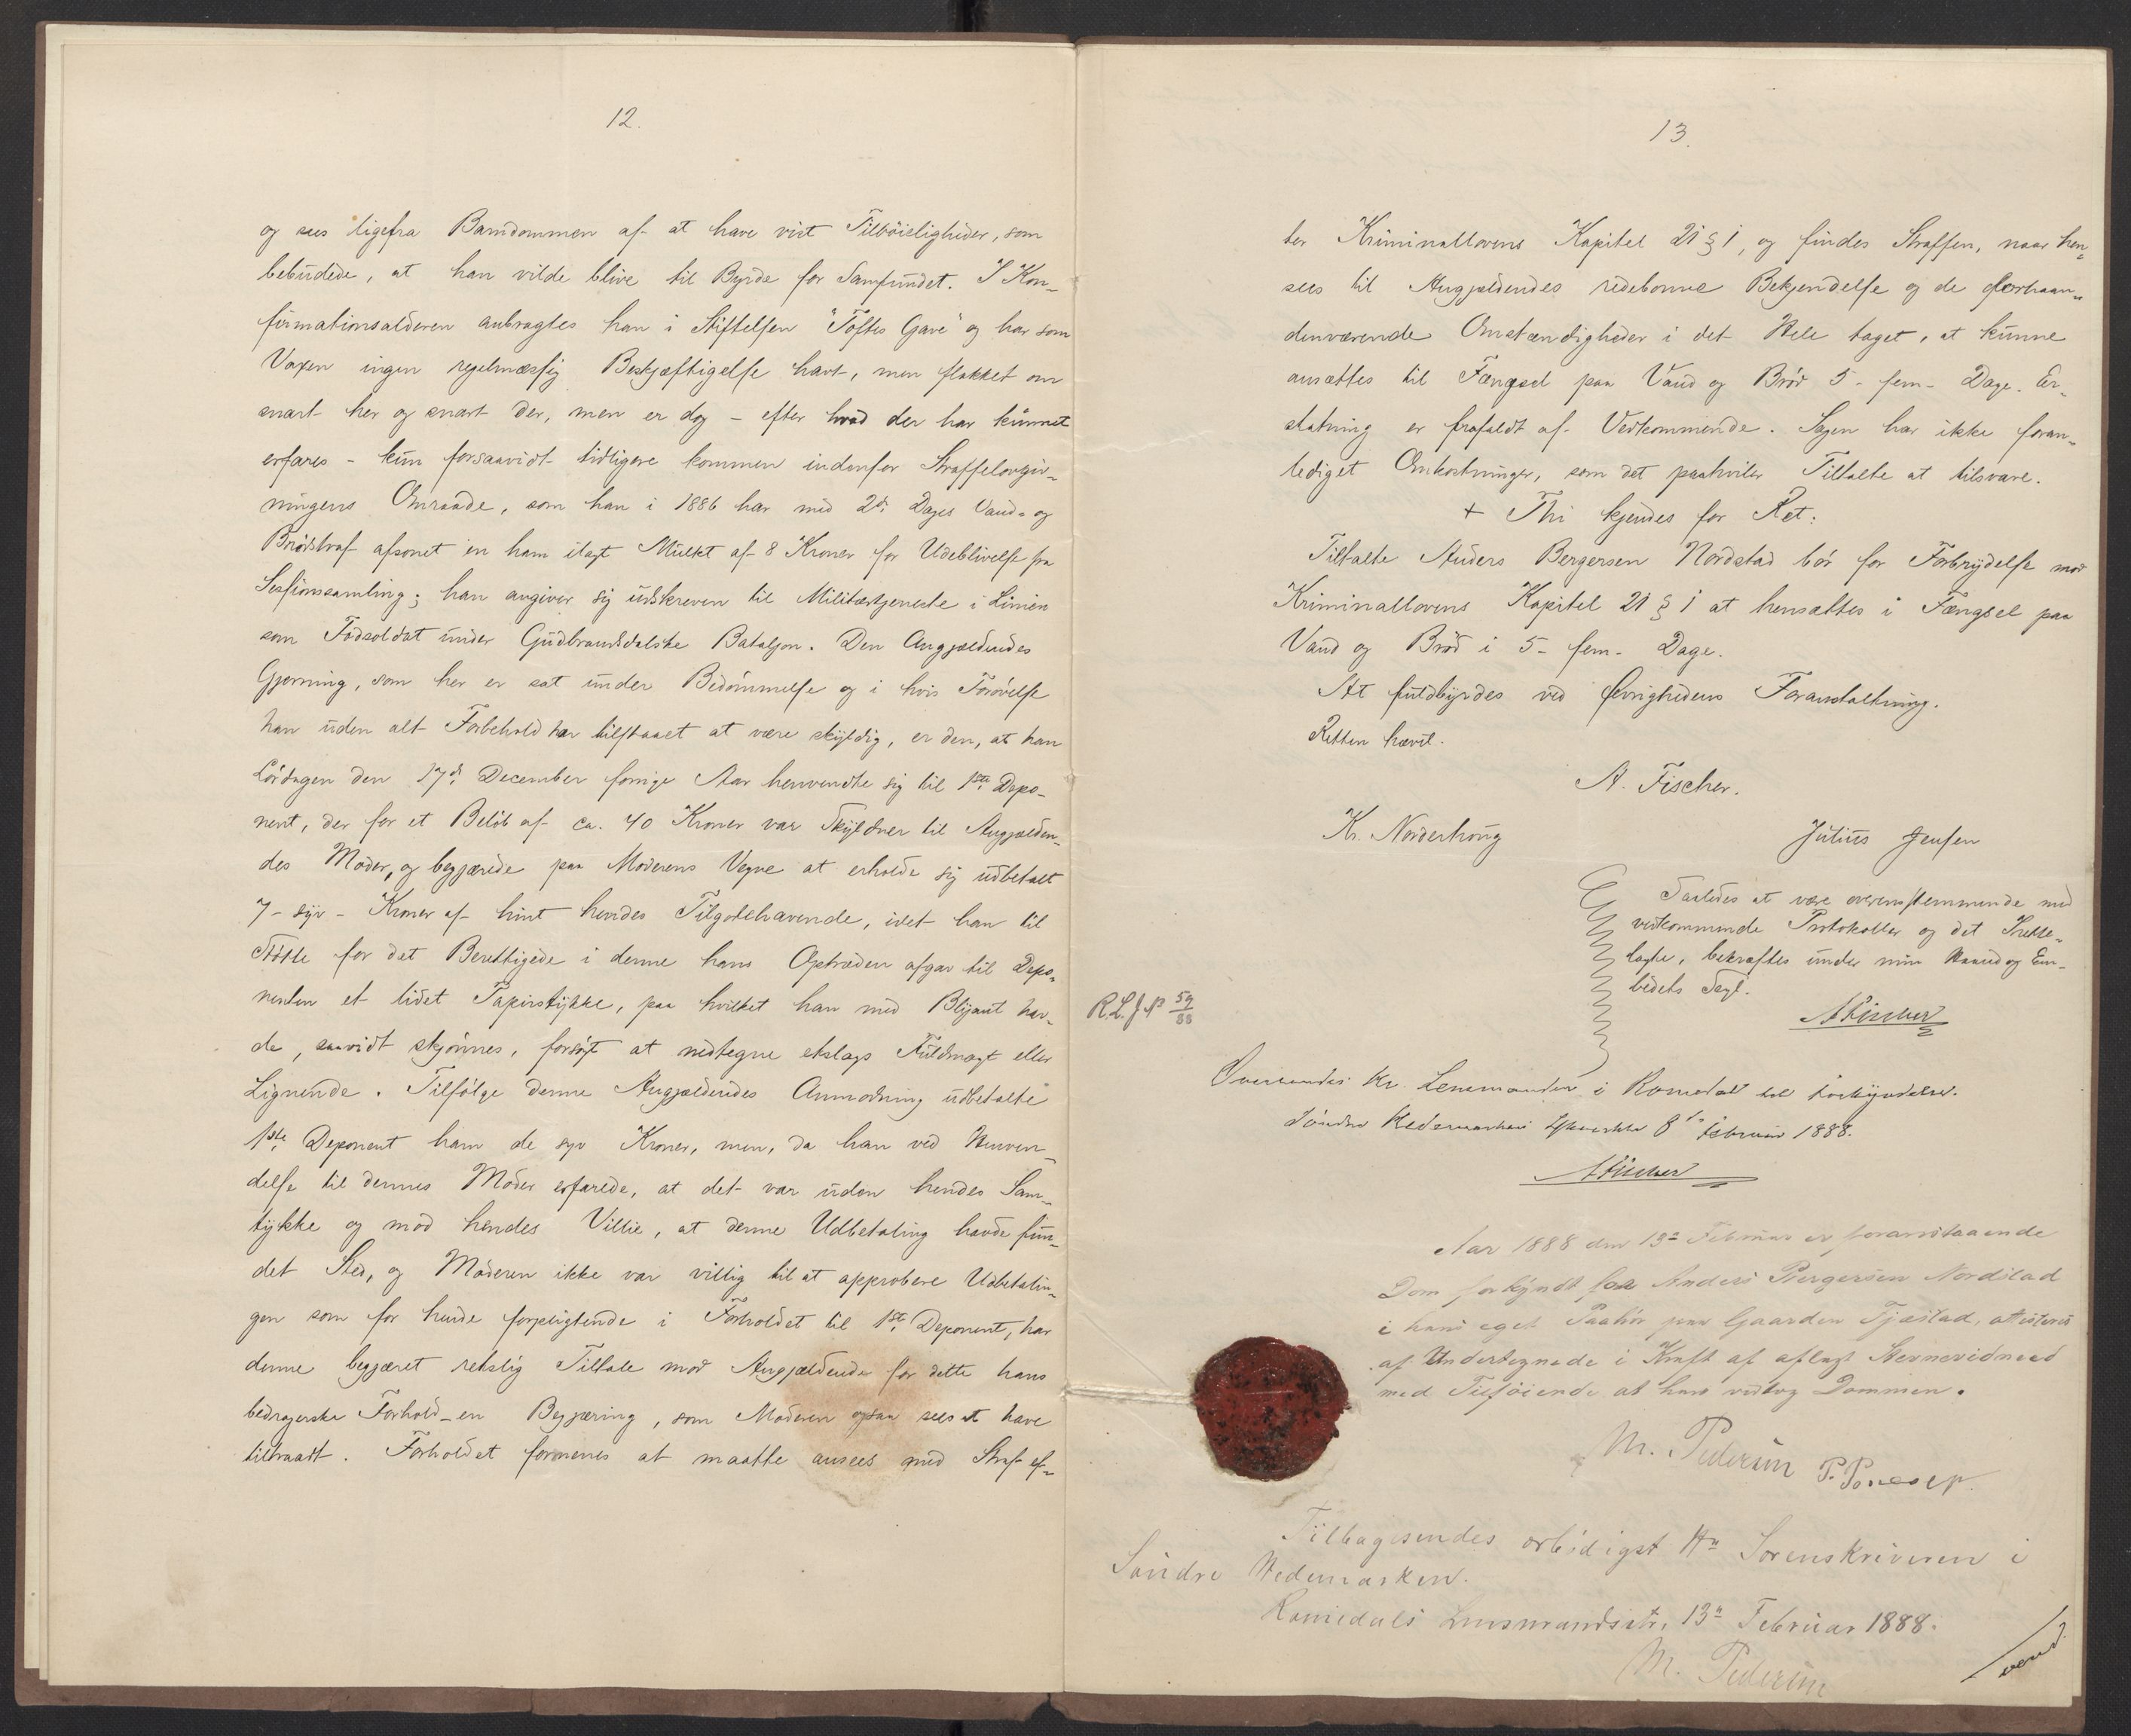 12.
og sees ligefra Barndommen af at have vist Tilböieligheder, som
bebudede, at han vilde blive til Byrde for Samfundet. I Kon-
firmationsalderen anbragtes han i Stiftelsen "Toftes Gave" og har som
Voxen ingen regelmæssig Beskjæftigelse havt, men flakket om
snart her og snart der, men er dog - efter hvad der har kunnet
erfares - kun forsaavidt tidligere kommen indenfor Straffelovgiv-
ningens Omraade, som han i 1886 har med 2de Dages Vand- og
Brödstraf afsonet en ham ilagt Mulkt af 8 Kroner for Udeblivelse fra
Sessionssamling; han angiver sig udskreven til Militærtjeneste i Linien
som Fodsoldat under Gudbrandsdalske Bataljon. Den Angjældendes
Gjerning, som her er sat under Bedömmelse og i hvis Forövelse
han uden alt Forbehold har tilstaaet at være skyldig, er den, at han
Lördagen den 17de December forrige Aar henvendte sig til 1ste Depo-
nent, der for et Belöb af ca. 40 Kroner var Skyldner til Angjælden-
des Moder, og begjærede paa Moderens Vegne at erholde sig udbetalt
7 - syv - Kroner af hint hendes Tilgodehavende, idet han til
Stötte for det Berettigede i denne hans Optræden afgav til Depo-
nenten et lidet Papirstykke, paa hvilket han med Blyant hav-
de, saavidt skjönnes, forsögt at nedtegne etslags Fuldmagt eller
Lignende. Tilfölge denne Angjældendes Anmodning udbetalte
1ste Deponent ham de syv Kroner, men, da han ved Henven-
delse til dennes Moder erfarede, at det var uden hendes Sam-
tykke og mod hendes Villie, at denne Udbetaling havde fun-
det Sted, og Moderen ikke var villig til at approbere Udbetalin-
gen som for hende forpligtende i Forholdet til 1ste Deponent, har
denne begjæret retslig Tiltale mod Angjældende for dette hans
bedragerske Forhold - en Begjæring, som Moderen ogsaa sees at have
tiltraadt. Forholdet formenes at maatte ansees med Straf ef-
13.
ter Kriminallovens Kapitel 21 § 1, og findes Straffen, naar hen-
sees til Angjældendes redebonne Bekjendelse og de forhaan-
denværende Omstændigheder i det Hele taget, at kunne
ansættes til Fængsel paa Vand og Bröd 5 - fem - Dage. Er-
statning er frafaldt af Vedkommende. Sagen har ikke foran-
lediget Omkostninger, som det paahviler Tiltalte at tilsvare.
+ Thi kjendes for Ret:
Tiltalte Anders Bergersen Nordstad bör for Forbrydelse mod
Kriminallovens Kapitel 21 § 1 at hensættes i Fængsel paa
Vand og Bröd i 5 - fem - Dage.
At fuldbyrdes ved Övrighedens Foranstaltning.
Retten hævet.
A. Fischer.
Kr. Norderhoug Julius Jensen
Saaledes at være overensstemmende med
vedkommende Protokoller og det Frem-
lagte, bekræftes under min Haand og Em-
bedets Segl.
AFischer
R.L.J. No 59/88
Oversendes Hr. Lensmanden i Romedal til Forkyndelse.
Söndre Hedemarkens 8de Februar 1888.
AFischer
Aar 1888 den 13de Februar er foranstaaende
Dom forkyndt for Anders Bergersen Nordstad
i hans eget Paahör paa Gaarden Tjæstad, attesteres
af Undertegnede i Kraft af aflagt Stevnevidneed
med Tilföiende at han vedtog Dommen.
M. Pedersen P.
Tilbagesendes ærbödigst Hr. Sorenskriveren i
Söndre Hedemarken.
Romedals Lensmandsetr. 13de Februar 1888.
M. Pedersen
vend